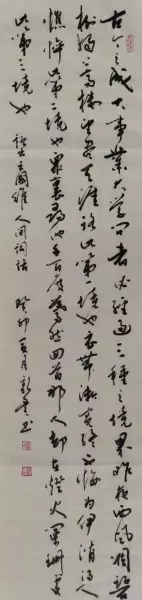 古今之成大事業大學問者必經過三種之境界昨夜西風凋碧
樹獨上高樓望尽天涯路此第一境也衣帶漸寬終不悔为伊消得人
憔悴此第二境也眾裏尋他千百度驀然回首那人却在燈火闌珊处
此第三境也 王國維人间詞話 癸卯夏月 书